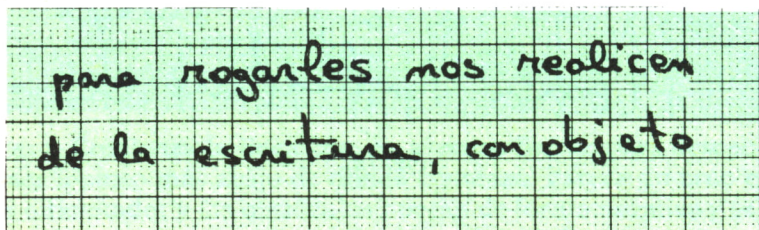 para rogarles nos realicen
de la escritura, con objeto